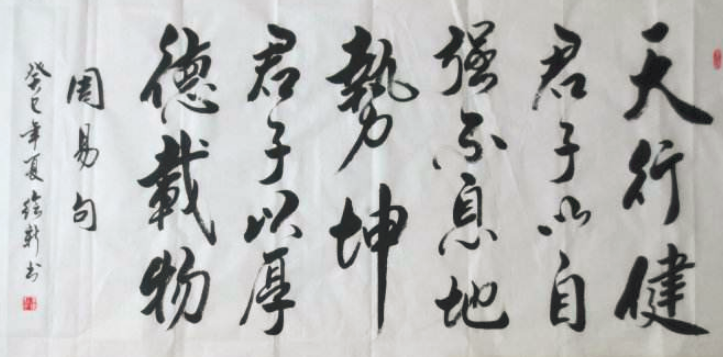 天行健
君子以自
强不息地
勢坤
君子以厚
德載物
周易句
癸巳年夏徐新书